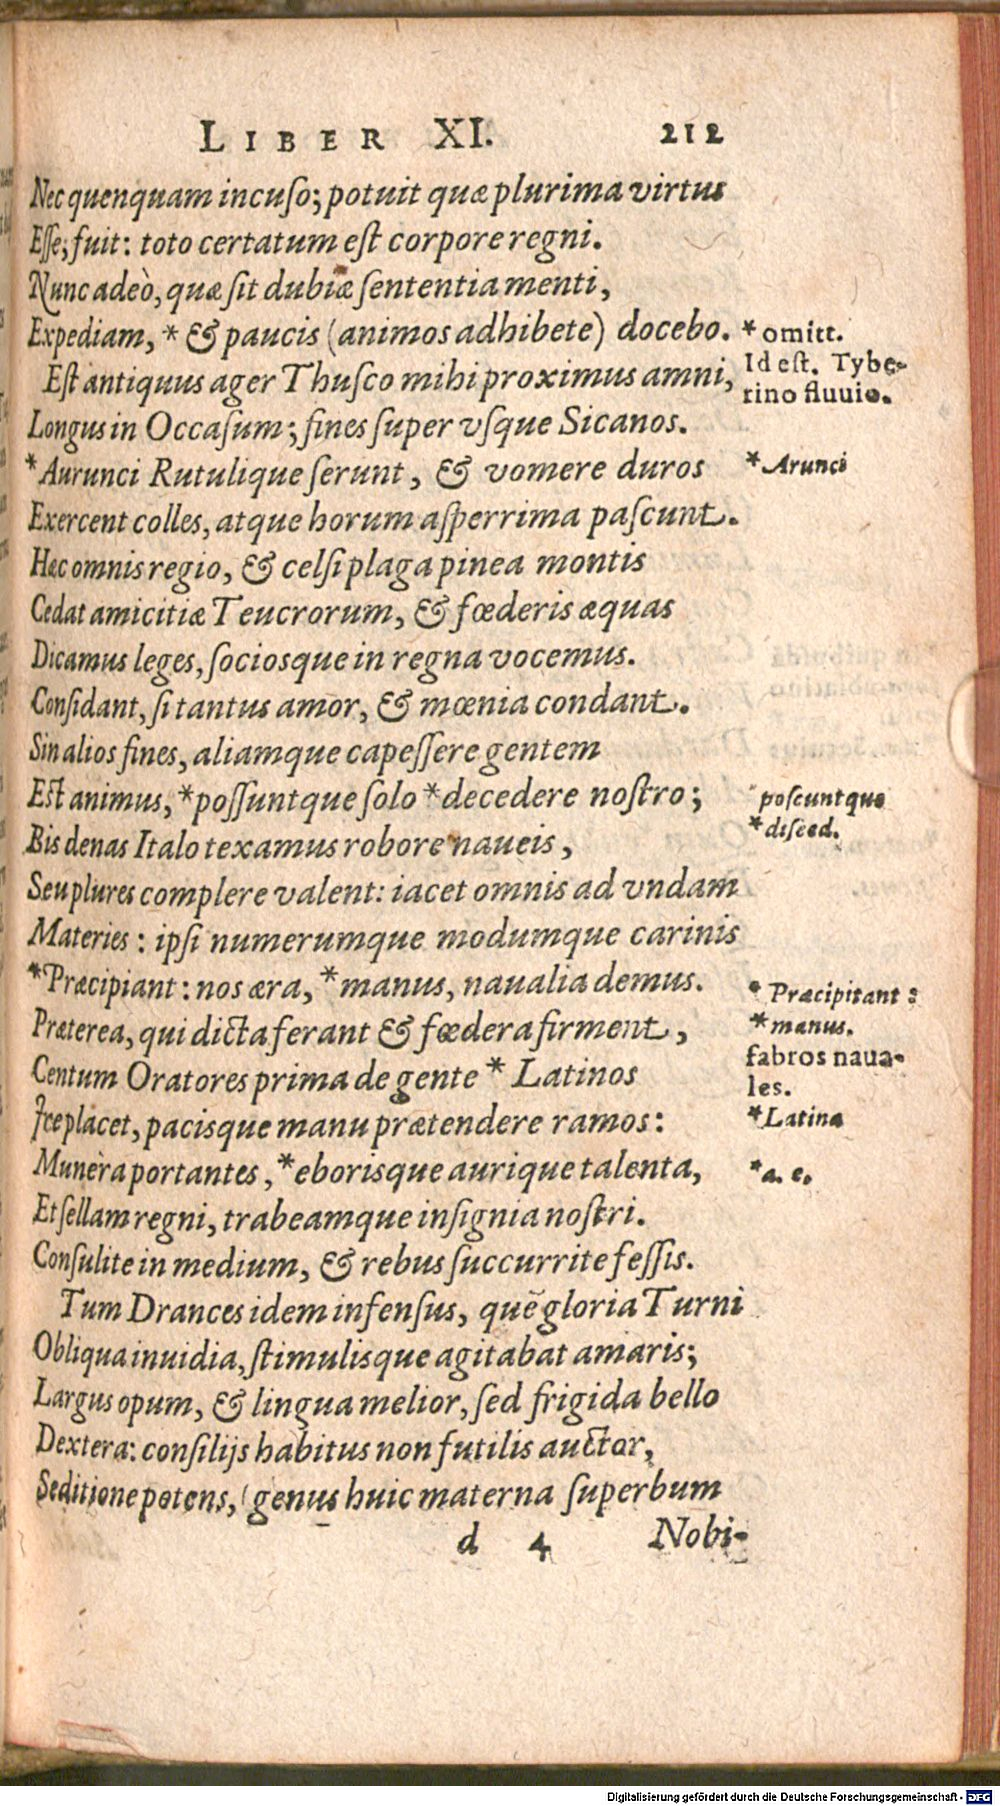 LIBER XI. 212
Nec quenquam incuso; potuit quæ plurima virtus
Esse, fuit: toto certatum est corpore regni.
Nunc adeò, quæ sit dubiæ sententia menti,
Expediam, * & paucis (animos adhibete) docebo. * omitt.
Est antiquus ager Thusco mihi proximus amni, Id est. Tybe-
rino fluvio.
Longus in Occasum; fines super vsque Sicanos.
*Aurunci Rutulique serunt, & vomere duros *Arunci
Exercent colles, atque horum asperrima pascunt.
Hæc omnis regio, & celsi plaga pinea montis
Cedat amicitiæ Teucrorum, & fœderis æquas
Dicamus leges, sociosque in regna vocemus.
Considant, si tantus amor, & mœnia condant.
Sin alios fines, aliamque capessere gentem
Est animus, *possuntque solo *decedere nostro; poscuntque
*disced.
Bis denas Italo texamus robore naueis,
Seu plures complere valent: iacet omnis ad vndam
Materies: ipsi numerumque modumque carinis
*Præcipiant: nos æra, *manus, naualia demus. * Præcipitant:
*manus.
fabros naua-
les.
Præterea, qui dicta ferant & fœdera firment,
Centum Oratores prima de gente * Latinos *Latina
Ire placet, pacisque manu prætendere ramos:
Munera portantes, *eborisque aurique talenta, *a. e.
Et sellam regni, trabeamque insignia nostri.
Consulite in medium, & rebus succurrite fessis.
Tum Drances idem infensus, quē gloria Turni
Obliqua inuidia, stimulisque agitabat amaris;
Largus opum, & lingua melior, sed frigida bello
Dextera: consilijs habitus non futilis auctor,
Seditione potens, (genus huic materna superbum
d 4 Nobi-
Digitalisierung gefördert durch die Deutsche Forschungsgemeinschaft - DFG